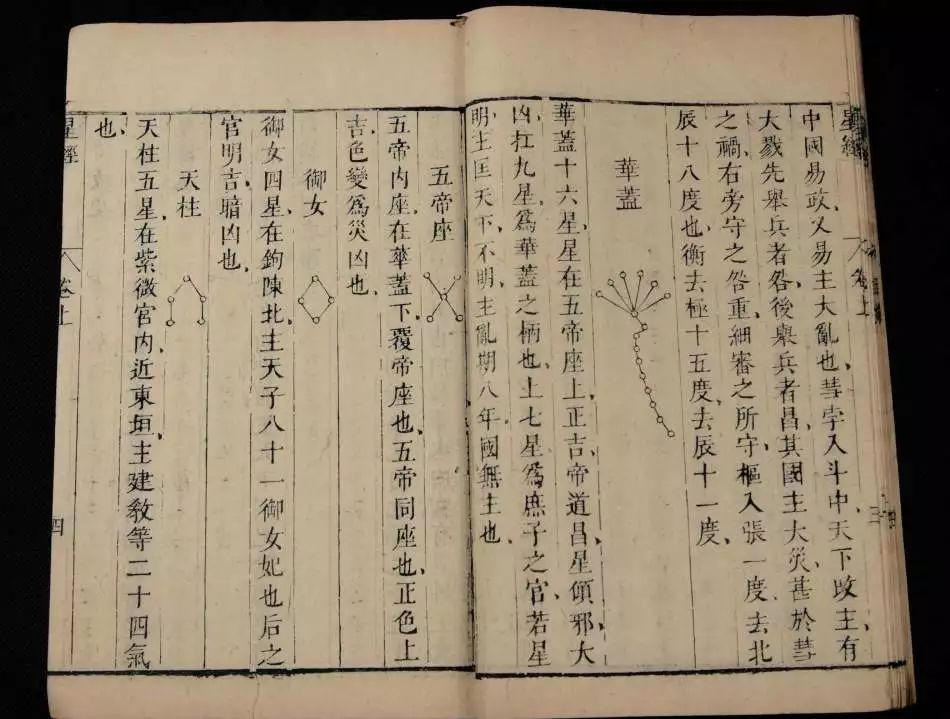 星經
卷上
三
中國易政又易主大亂也彗孛入斗中天下改主有
大戮先舉兵者咎後舉兵者昌其國主大災甚於彗
之禍右旁守之咎重細審之所守樞入張一度去北
辰十八度也衡去極十五度去辰十一度
華蓋
華蓋十六星星在五帝座上正吉帝道昌星傾邪大
凶扛九星爲華蓋之柄也上七星爲庶子之官若星
明主匡天下不明主亂期八年國無主也
五帝座
五帝內座在華蓋下覆帝座也五帝同座也正色上
吉色變爲災凶也
御女
御女四星在鉤陳北主天子八十一御女妃也后之
官明吉暗凶也
天柱
天柱五星在紫微宮內近東垣主建敎等二十四氣
也
星經
卷上
四